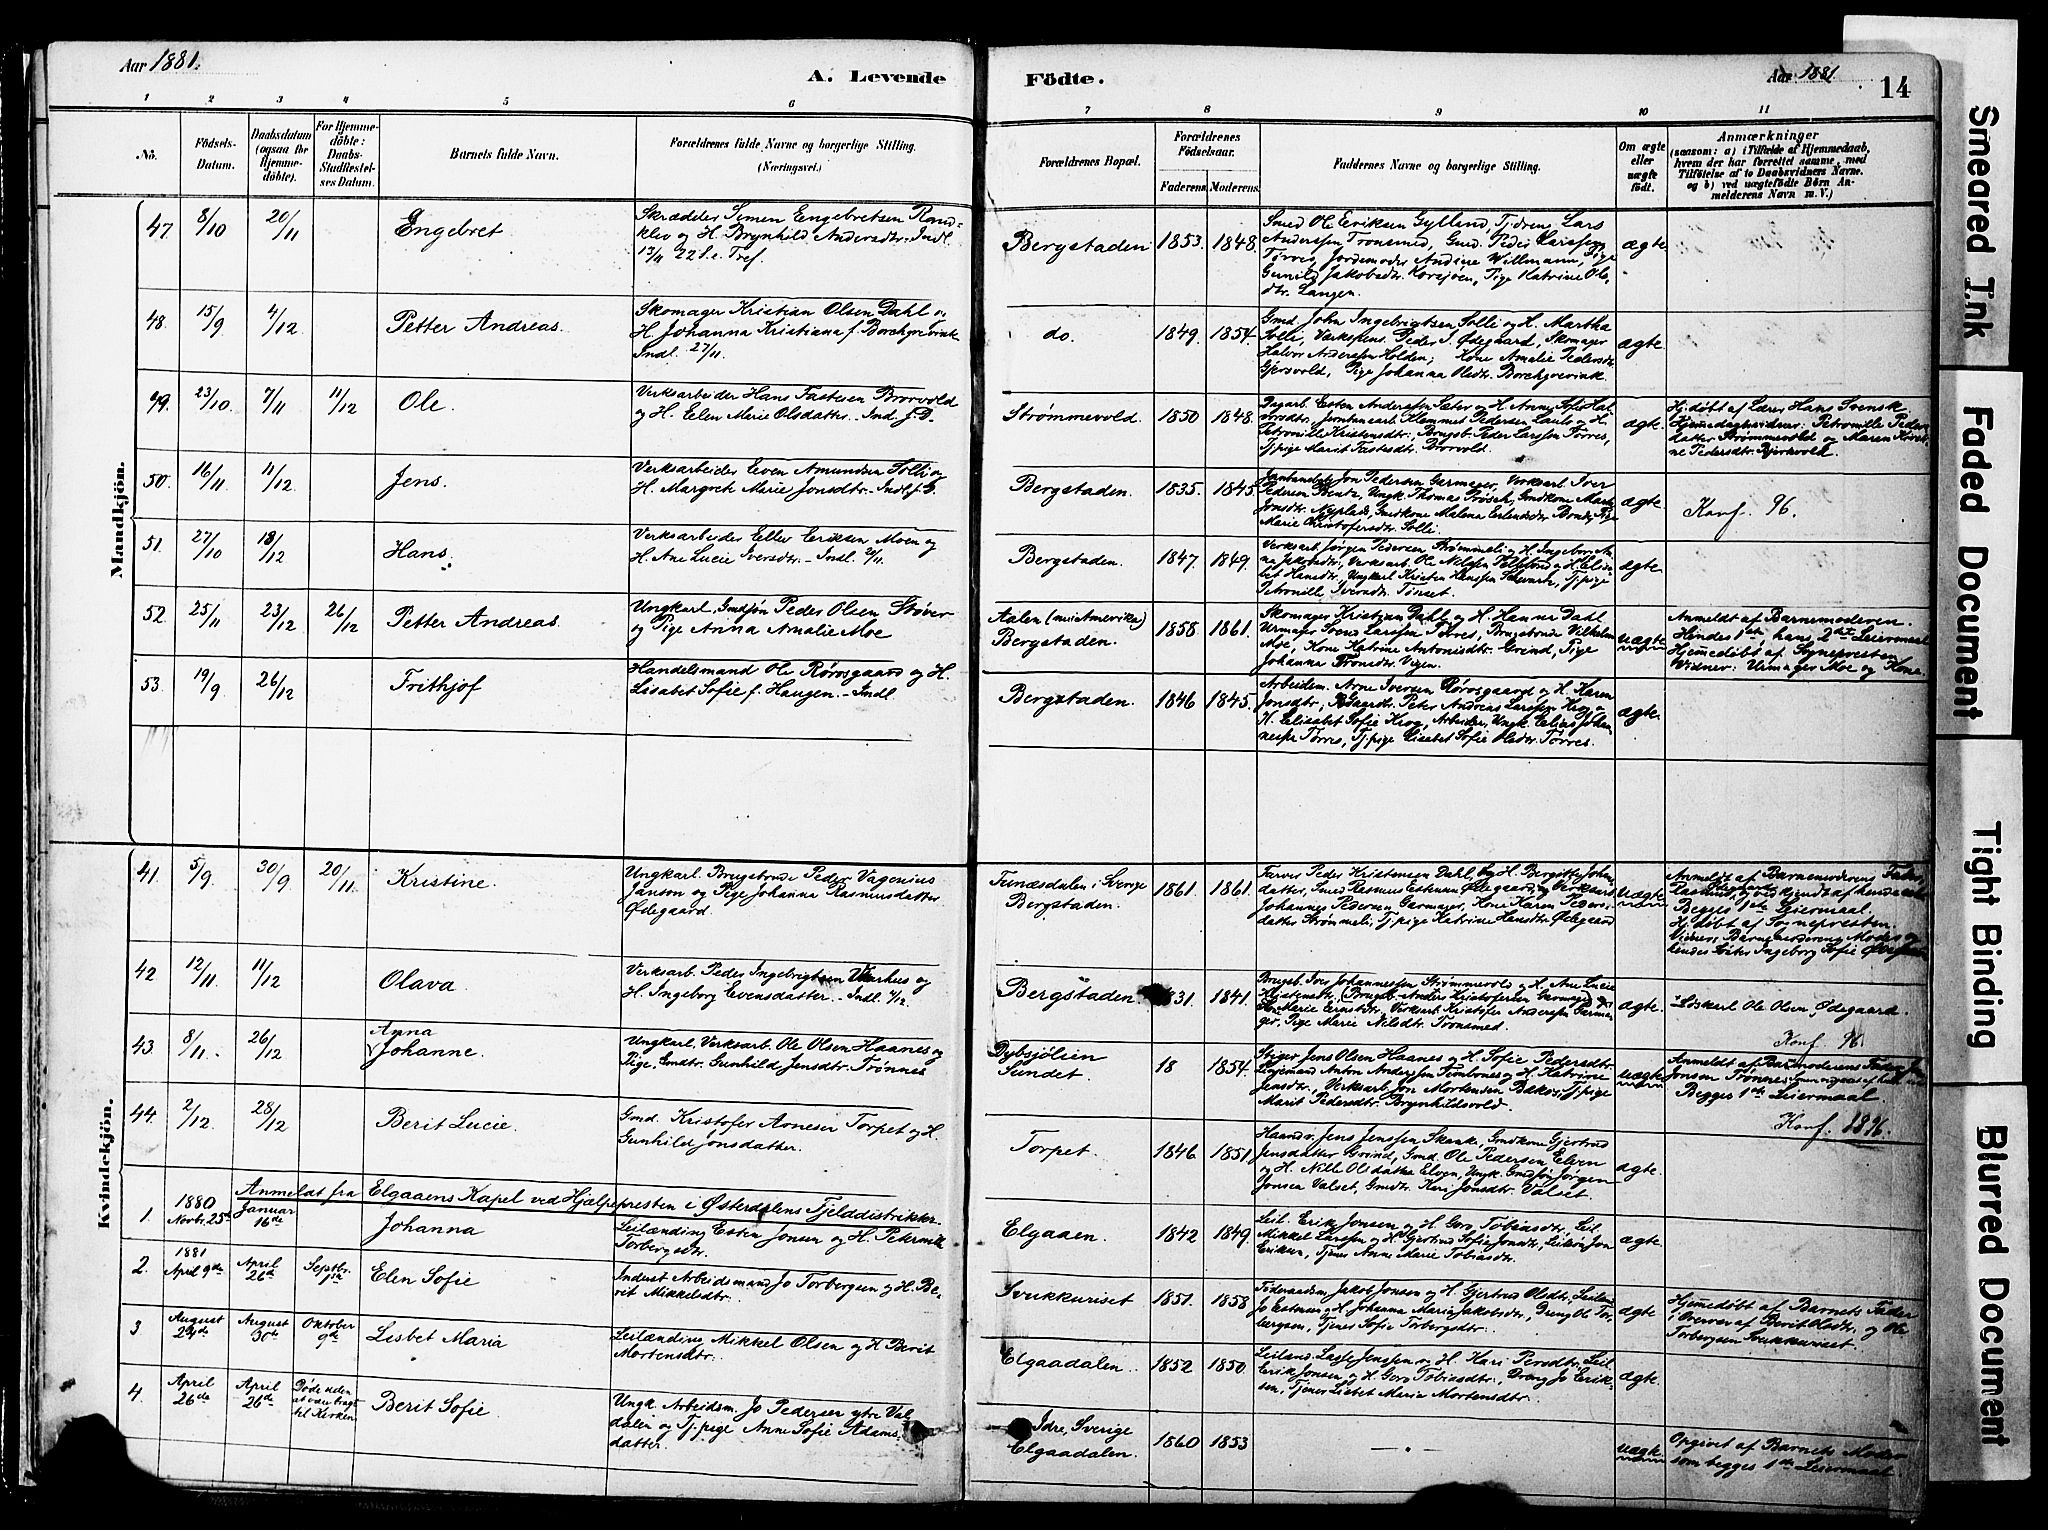 Aar 1881.
A. Levende
Födte.
Aar 1881
14
1 2 3 4 5 6 7 8 9 10 11
Nö.
Födsels-
Datum.
Daabsdatum
(ogsaa for
Hjemme-
döbte).
For Hjemme-
döbte:
Daabs-
Stadfæstel-
ses Datum.
Barnets fulde Navn.
Forældrenes fulde Navne og borgerlige Stilling.
(Næringsvei.)
Forældrenes Bopæl.
Forældrenes
Födselsaar.
Faderens. Moderens.
Faddernes Navne og borgerlige Stilling.
Om ægte
eller
uægte
födt.
Anmærkninger
(saasom: a) i Tilfælde af Hjemmedaab,
hvem der har forrettet samme, med
Tilföielse af to Daabsvidners Navne.
og b) ved uægtefödte Börn An-
melderens Navn m. V.)
Mandkjön.
47. 8/10 20/11 Engebret
Skrædder Simen Engebretsen Rand-
klev og H. Brynhild Andersdtr. Indl.
13/11 22 S. e. Tref.
Bergstaden 1853. 1848.
Smed Ole Eriksen Gylland, Tjdren. Lars
Anderssen Tronsmed, Gmd. Peder Larssen
Tørres, Jordemoder Andine Willmann, Pige
Gunild Jakobsdtr. Korsjøen, Pige Katrine Ols-
dtr. Langen.
ægte
48. 15/9 4/12 Petter Andreas.
Skomager Kristian Olsen Dahl og
H. Johanna Kristiana f. Borchgrevink
Indl. 27/11
do. 1849. 1854.
Gmd John Ingebrigtsen Solli og H. Martha
Solli, Værkspens. Peder J. Ødegaard, Skomager
Halvor Anderssen Holden; Kone Amalie Pedersdtr.
Gjersvold, Pige Johanna Olsdtr. Borchgrevink.
ægte
49. 23/10. 7/11 11/12 Ole.
Verksarbeider Hans Fastesen Brovold
og H. Elen Marie Olsdatter. Ind. f. D.
Strømmevold. 1850 1848.
Dagarb. Esten Anderssen Sæter og H. Anne Sofie Hal-
vorsdtr., Klemmet Pedersen og H.
Petronille Kristensdtr; Brugsb. Peder Larssen Tørres,
Tj.pige Marit Fastesdtr. Brovold.
ægte.
Hj.døbt af Lærer Hans Svensk.
Hjemmedaabsvidner: Petronille Peders-
datter Strømmevold og Maren Kirsti-
ne Pedersdtr. Bjørkvold.
50. 16/11 11/12 Jens.
Verksarbeider Even Amundsen Solli og
H. Margrete Marie Jonsdtr. Indl. f. G.
Bergstaden. 1835. 1845.
Jon Pedersen Garmager, Verksarb. Iver
Pedersen Bentz, Ungk. Thomas Prøsch, Gmdkone Marit
Jonsdtr. Nyplads, Gmdkone Malena Erlandsdtr. Pige
Marie Christofersdtr. Solli.
ægte
Konf. 96.
51. 27/10 18/12 Hans.
Verksarbeider Ellev Eriksen Moen og
H. Ane Lucie Iversdtr. Indl. 9/11.
Bergstaden. 1847. 1849.
Verksarb. Jørgen Pedersen Strømmeli og H. Ingeborg An-
na Jakobsdtr., Verksarb. Ole Nilssen og H. Elisa-
bet Hansdtr., Ungkarl Kristen Hanssen, Tj.pige
Petronille Iversdtr. Tønset.
ægte
52. 25/11 23/12 26/12 Petter Andreas.
Ungkarl, Gmdsøn Peder Olsen Støver
og Pige Anna Amalie Moe
Aalen (nu i Amerika)
Bergstaden. 1858. 1861.
Skomager Kristian Dahl og H. Hanna Dahl
Urmager Svend Larssen Tørres, Brugsbonde Vilhelm
Moe, Kone Katrine Antonisdtr. Grind, Pige
Johanna Tronsdtr. Vigen.
uægte
Anmeldt af Barnemoderen.
Hendes 1ste, hans 2det Leiermaal.
Hjemmedøbt af Sognepresten
Vidner: Urmager Moe og Kone.
53. 19/9 26/12 Frithjof
Handelsmand Ole Rørosgaard og H.
Lisabet Sofie f. Haugen. Indl.
Bergstaden. 1846 1845.
Arbeidsm. Arne Iversen Rørosgaard og H. Karen
Jonsdtr; Peter Andreas Larssen Krog og
H. Elisabet Sofie Krog, Arbeider, Ungk. Elias Johan-
nessen Tørres, Tj.pige Lisabet Sofie Olsdtr. Tørres.
ægte.
Kvindekjön.
41. 5/9. 30/9 20/11. Kristine.
Ungkarl. Brugsbonde Peder Vagenius
Janson og Pige Johanna Rasmusdatter
Ødegaard.
Funæsdalen i Sverige
Bergstaden. 1861. 1861.
Farver Peder Kristensen Dahl, og H. Bergitte Johns-
datter, Smed Rasmus Estensen Ødegaard, og Verksarb.
Johannes Pedersen Garmager, Kone Karen Peders-
datter Strømmeli, Tj.pige Katrine Hansdtr. Ødegaard
uægte
Anmeldt af Barnemoderens Fader,
Rasmus, vedkjendt af hende selv
Begges 1ste Leiermaal.
Hj.døbt af Sognepresten.
Vidner: Barnemoderens Moder og
hendes Søster Ingeborg Sofie Ødegaard
42 12/11 11/12 Olava.
Verksarb. Peder Ingebrigtsen Vaarhus og
H. Ingeborg Evensdatter. Indl. 4/12.
Bergstaden 1831. 1841.
Brugsb. Iver Johannessen Strømmevold og H. Ane Lucie
Kristensdtr., Brugsb. Anders Kristofersen Garmager og
H. Marie Ernstdtr., Verksarb. Kristofer Anderssen Garma-
ger, Pige Marie Nilsdtr. Tronsmed.
ægte.
Løskarl Ole Olsen, Ødegaard.
Konf. 96.
43. 8/11. 26/12 Anna
Johanne.
Ungkarl. Verksarb. Ole Olsen Haanes og
Pige, Gmdtr. Gunhild Jensdtr. Trønnes
Dybsjølien
Sundet. 18 1854.
Stiger Jens Olsen Haanes og H. Sofie Pedersdtr.
Leiemand Anton Anderssen og H. Katrine
Jensdtr., Verksarb. Jon Mortensen Bakos, Tj.pige
Marit Pedersdtr. Brynhildsvold.
uægte
Anmeldt af Barnemoderens Fader Jens
Jonsen Trønnes,
Begges 1ste Leiermaal.
Konf. 1896.
44. 2/12. 28/12 Berit Lucie.
Gmd. Kristofer Arnesen Torpet og H.
Gunhild Jonsdatter.
Torpet. 1846 1851.
Haandv. Jens Jenssen Skanke, Gmdkone Gjertrud
Jensdatter Grind, Gmd. Ole Pedersen Elven
og H. Nille Olsdatter Elven, Ungk. Gmdsøn Jørgen
Jonsen Valset, Gmdtr. Kari Jonsdtr. Valset.
ægte.
Anmeldt fra Elgaaens Kapel ved Hjælpepresten i Østerdalens Fjelddistrikter.
1. 1880
Novbr. 25de Januar
16de Johanna
Leilænding Esten Jonsen og H. Peternille
Torbergsdtr.
Elgaaen. 1842 1849.
Leil. Erik Jonsen og H. Goro Tobiasdtr., Leil.
Mikkel Larssen og H. Gjertrud Sofie Jonsdtr., Leiksn Jon
Eriksen, Tjenes Anne Marie Tobiasdtr.
ægte.
2. 1881
April 9de April
26de Septbr.
1ste Elen Sofie
Inderst Arbeidsmand Jo Torbergsen og H. Be-
rit Mikkelsdtr.
Svukkuriset 1851. 1858
Føderaadsm. Jakob Jonsen og H. Gjertrud Olsdtr., Leilænd.
Jo Estensen og H. Johanna Maria Jakobsdtr., Dreng Ole Tor-
bergsen, Tjenes Sofie Torbergsdtr.
ægte
Hjemmedøbt af Barnets Fader
i Overvær af Berit Olsdtr. og Ole
Torbergsen Svukkuriset.
3 August
29de August
30te Oktober
9de Lisbet Maria
Leilænding Mikkel Olsen og H. Berit
Mortensdtr.
Elgaadalen. 1852 1850.
Leilænd. Lasse Jenssen og H. Kari Persdtr., Leil.
Erik Jonsen og H. Goro Tobiasdtr., Dreng Jo Erik-
sen, Tjenes Lisbet Maria Mortensdtr.
ægte.
4. April
26de April
26de Døde uden
at være bragt
til Kirken Berit Sofie.
Ungk. Arbeidsm. Jo Pedersen ytre Val-
dalen og Tj.pige Anne Sofie Adams-
datter.
Idre, Sverige
Elgaadalen. 1860 1853
uægte
Opgivet af Barnets Moder
som begges 1ste Leiermaal.
Smeared Ink
Faded Document
Tight Binding
Blurred Document